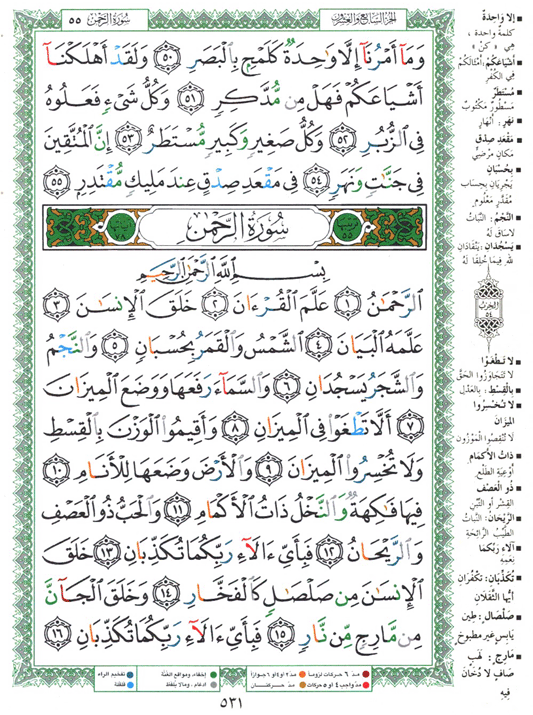 سورة الرحمن ٥٥
الجزء السابع والعشرون
وَمَآ أَمْرُنَآ إِلَّا وَٰحِدَةٌ كَلَمْحٍۭ بِٱلْبَصَرِ ٥٠ وَلَقَدْ أَهْلَكْنَآ
أَشْيَاعَكُمْ فَهَلْ مِن مُّدَّكِرٍ ٥١ وَكُلُّ شَىْءٍ فَعَلُوهُ
فِى ٱلزُّبُرِ ٥٢ وَكُلُّ صَغِيرٍ وَكَبِيرٍ مُّسْتَطَرٌ ٥٣ إِنَّ ٱلْمُتَّقِينَ
فِى جَنَّٰتٍ وَنَهَرٍ ٥٤ فِى مَقْعَدِ صِدْقٍ عِندَ مَلِيكٍ مُّقْتَدِرٍۭ ٥٥
سُورَةُ الرَّحْمٰن
بِسْمِ ٱللَّهِ ٱلرَّحْمَٰنِ ٱلرَّحِيمِ
ٱلرَّحْمَٰنُ ١ عَلَّمَ ٱلْقُرْءَانَ ٢ خَلَقَ ٱلْإِنسَٰنَ ٣
عَلَّمَهُ ٱلْبَيَانَ ٤ ٱلشَّمْسُ وَٱلْقَمَرُ بِحُسْبَانٍ ٥ وَٱلنَّجْمُ
وَٱلشَّجَرُ يَسْجُدَانِ ٦ وَٱلسَّمَآءَ رَفَعَهَا وَوَضَعَ ٱلْمِيزَانَ
٧ أَلَّا تَطْغَوْا۟ فِى ٱلْمِيزَانِ ٨ وَأَقِيمُوا۟ ٱلْوَزْنَ بِٱلْقِسْطِ
وَلَا تُخْسِرُوا۟ ٱلْمِيزَانَ ٩ وَٱلْأَرْضَ وَضَعَهَا لِلْأَنَامِ ١٠
فِيهَا فَٰكِهَةٌ وَٱلنَّخْلُ ذَاتُ ٱلْأَكْمَامِ ١١ وَٱلْحَبُّ ذُو ٱلْعَصْفِ
وَٱلرَّيْحَانُ ١٢ فَبِأَىِّ ءَالَآءِ رَبِّكُمَا تُكَذِّبَانِ ١٣ خَلَقَ
ٱلْإِنسَٰنَ مِن صَلْصَٰلٍ كَٱلْفَخَّارِ ١٤ وَخَلَقَ ٱلْجَآنَّ
مِن مَّارِجٍ مِّن نَّارٍ ١٥ فَبِأَىِّ ءَالَآءِ رَبِّكُمَا تُكَذِّبَانِ ١٦
إلا وَاحِدَةٌ
كلمةٌ واحدة ،
هي « كُنْ »
أَشْيَاعَكُمْ: أمثَالَكُمْ
في الكُفْرِ
مُسْتَطَرٌ
مَسْطُورٌ مَكْتُوبٌ
نَهَرٍ: أنْهَارٍ
مَقْعَدِ صِدْق
مكانٍ مَرْضِيٍّ
بِحُسْبَان
يَجْرِيَانِ بِحِسَاب
مُقَدَّرٍ مَعْلُومٍ
النَّجْمُ: النَّبَاتُ
لاسَاقَ لَهُ
يَسْجُدَانِ: يَنْقَادَانِ
للهِ فِيمَا خُلِقَا لَهُ
الحِزْبُ
٥٤
لا تَطْغَوْا
لا تَتَجَاوَزُوا الحَقَّ
بِالْقِسْطِ: بِالعَدْلِ
لَا تُخْسِرُوا
المِيزانَ
لا تَنْقُصُوا المَوْزُونَ
ذَاتُ الأَكْمَامِ
أَوْعِيَةِ الطَّلْعِ
ذُو العَصْفِ
القِشْرِ أو التِّبْنِ
الرَّيْحَانُ: النَّبَاتُ
الطَّيِّبُ الرَّائِحَةِ
آلاءِ رَبِّكُمَا
نِعَمِهِ
تُكَذِّبَانِ: تَكْفُرَانِ
أَيُّهَا الثَّقَلَانِ
صَلْصَالٍ: طِينٍ
يَابِسٍ غَيْرِ مَطْبُوخٍ
مَارِجٍ: لَهَبٍ
صَافٍ لَا دُخَانَ
فِيهِ
مدّ ٦ حركات لزوماً
مدّ ٢ أو ٤ أو ٦ جوازاً
إخفاء، ومواقع الغنّة
تفخيم الراء
مدّ واجب ٤ أو ٥ حركات
مدّ حركتان
ادغام ، وما لا يُلفظ
قلقلة
٥٣١